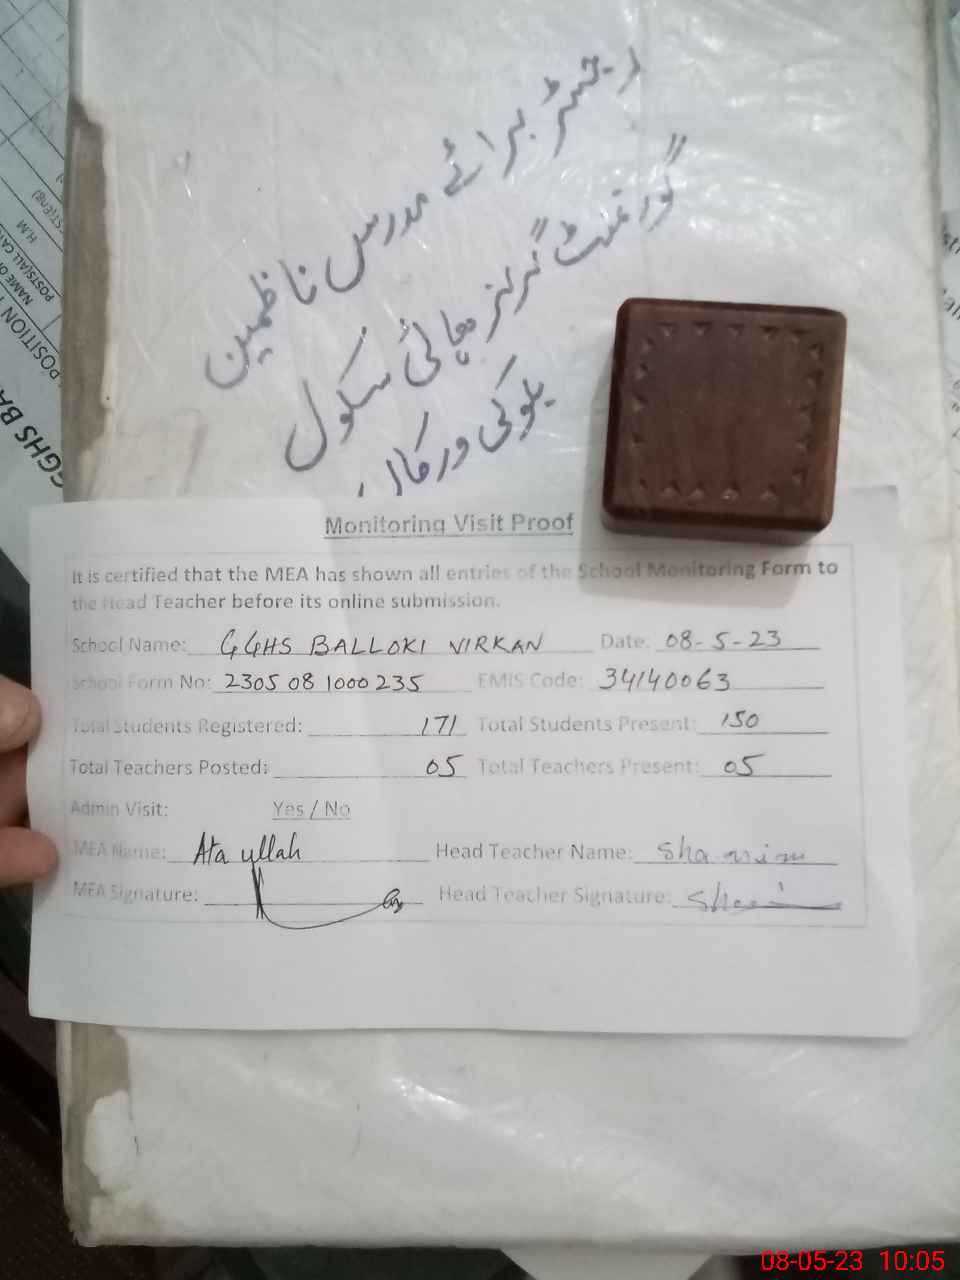 رجسٹر برائے مدرس ناظمین
گورنمنٹ گرلز ہائی سکول
بلوکی ورکاں
Monitoring Visit Proof
It is certified that the MEA has shown all entries of the School Monitoring Form to
the Head Teacher before its online submission.
School Name: GGHS BALLOKI VIRKAN Date: 08-5-23
School Form No: 2305 08 1000 235 EMIS Code: 34140063
Total Students Registered: 171 Total Students Present: 150
Total Teachers Posted: 05 Total Teachers Present: 05
Admin Visit: Yes / No
MEA Name: Ata ullah Head Teacher Name:
MEA Signature: Head Teacher Signature:
H.M
POSTS(ALL CAT
NAME OF
POSITION
GGHS BA
08-05-23 10:05